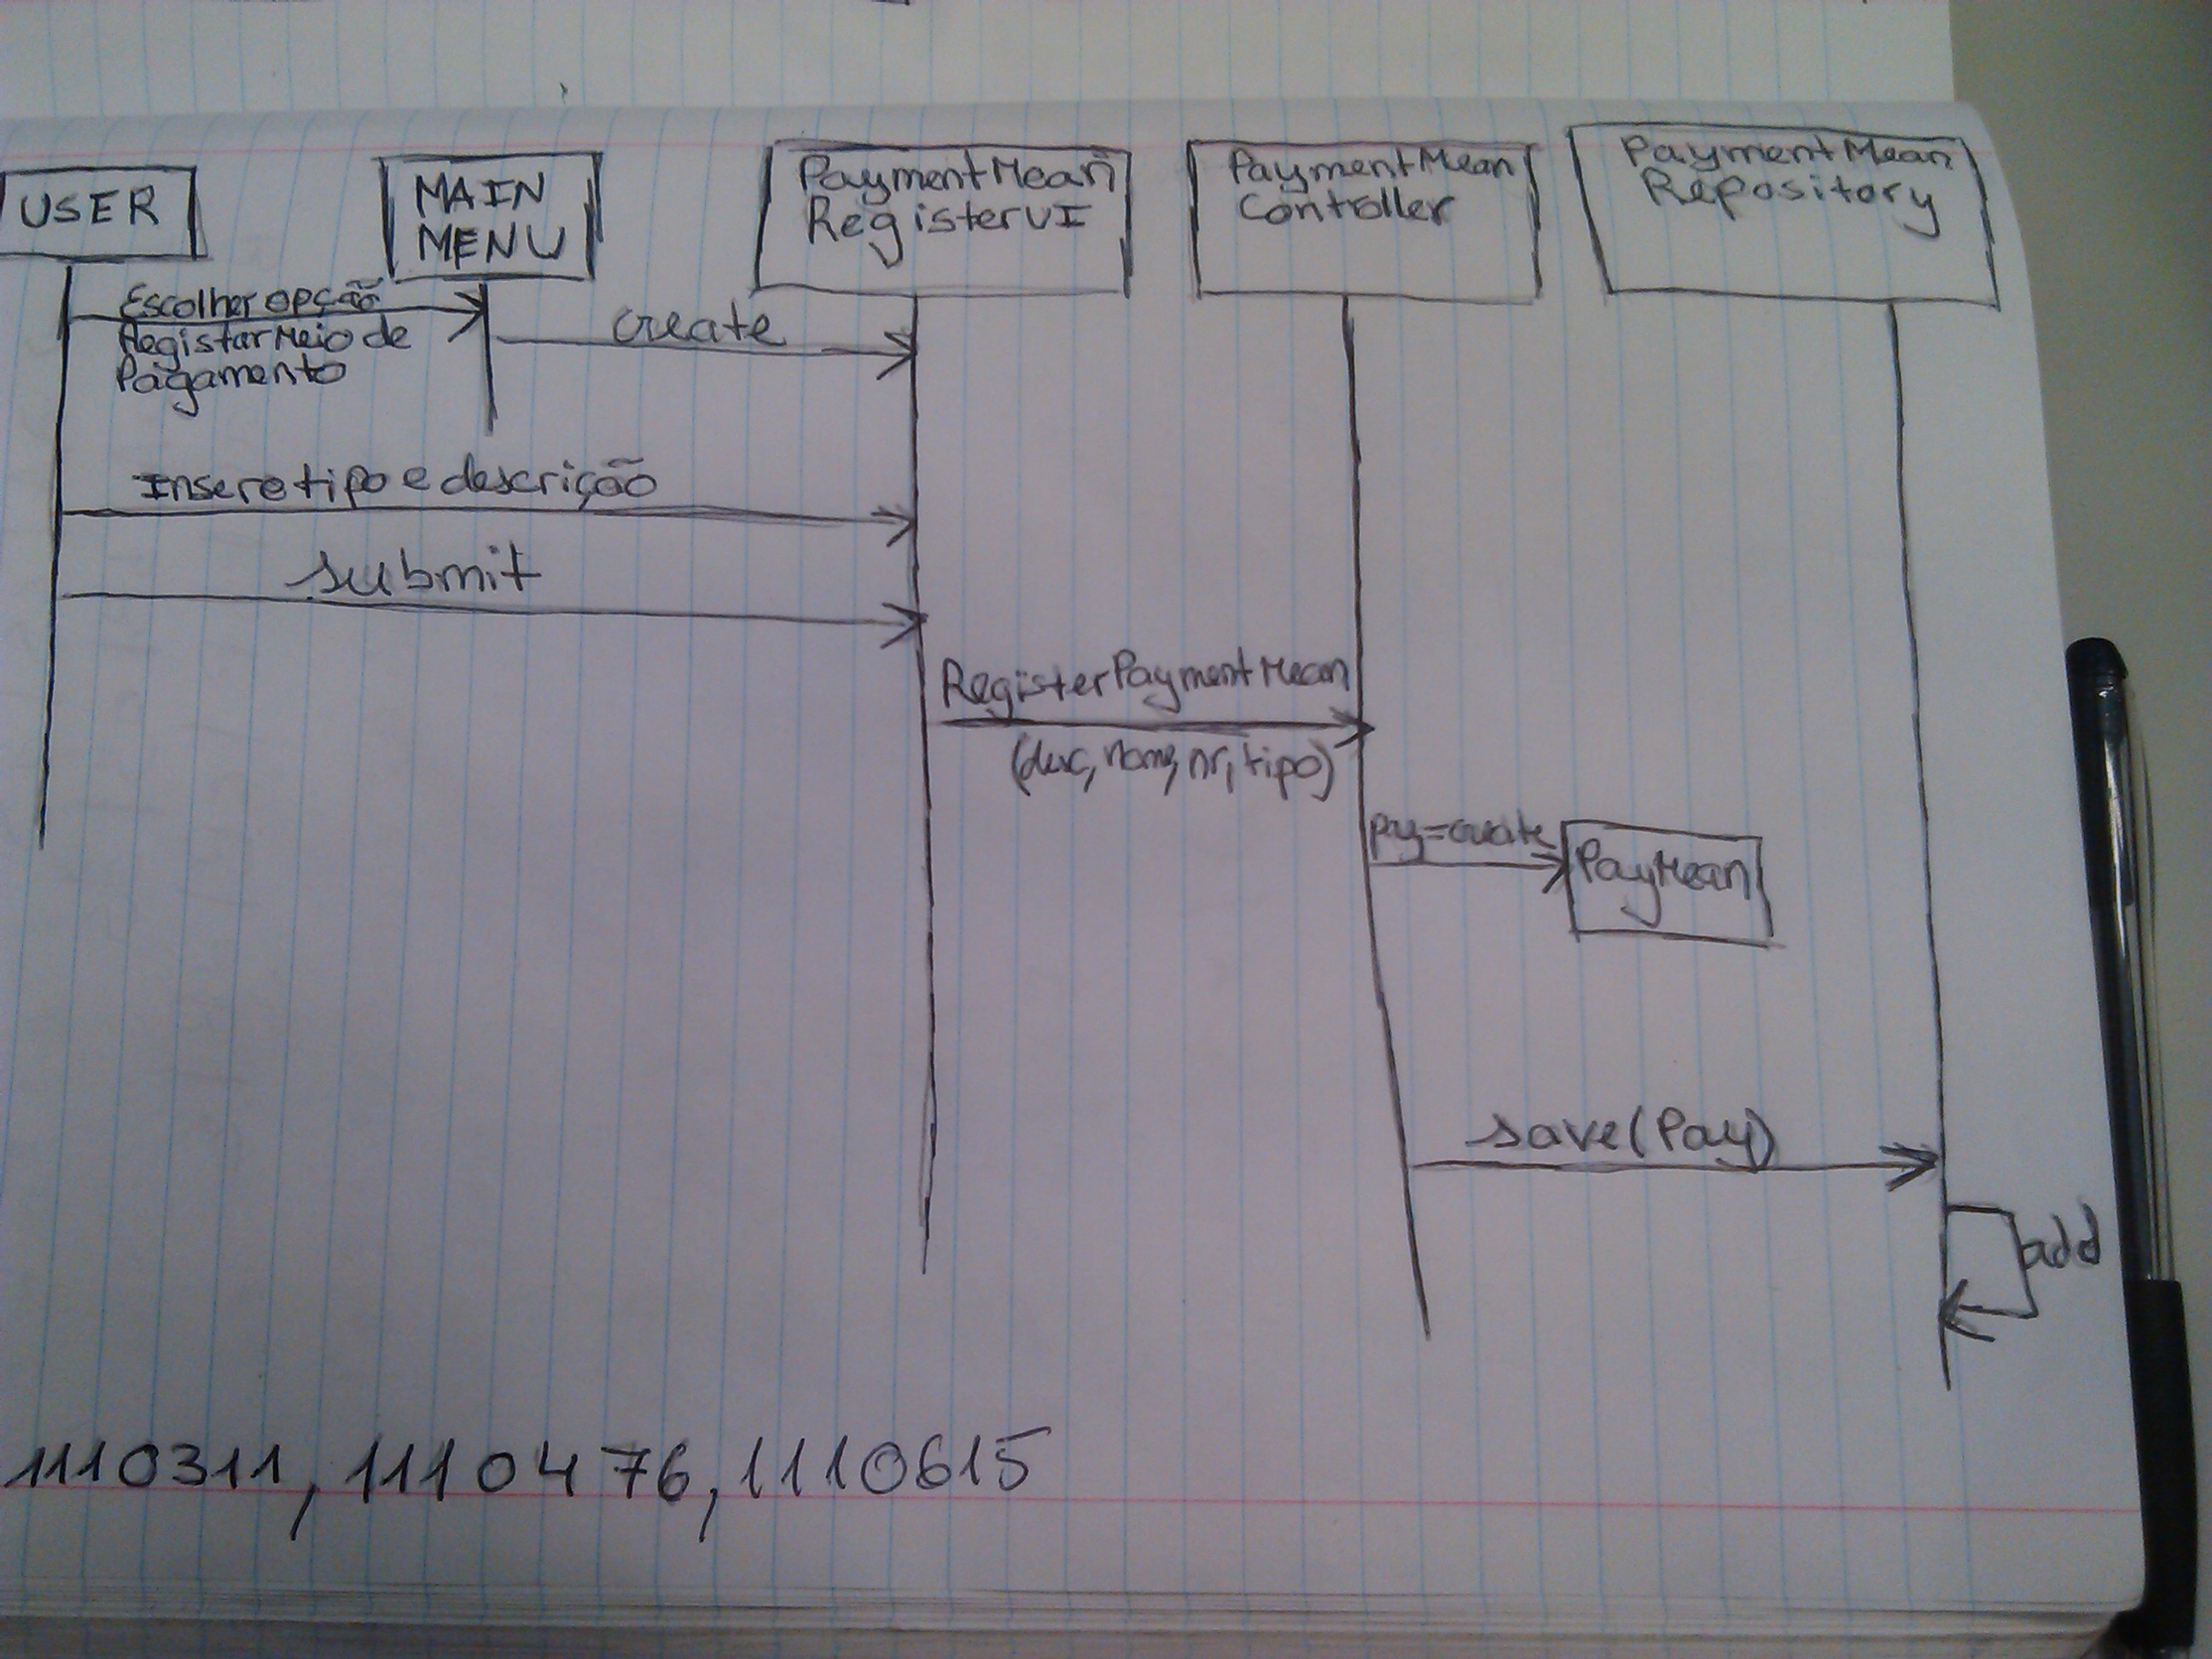 USER
MAIN
MENU
PaymentMean
RegisterUI
PaymentMean
Controller
PaymentMean
Repository
Escolher opção
Registar Meio de
Pagamento
create
Insere tipo e descrição
submit
RegisterPaymentMean
(desc, nome, nr, tipo)
pay=create
PayMean
save(Pay)
add
1110311, 1110476, 1110615